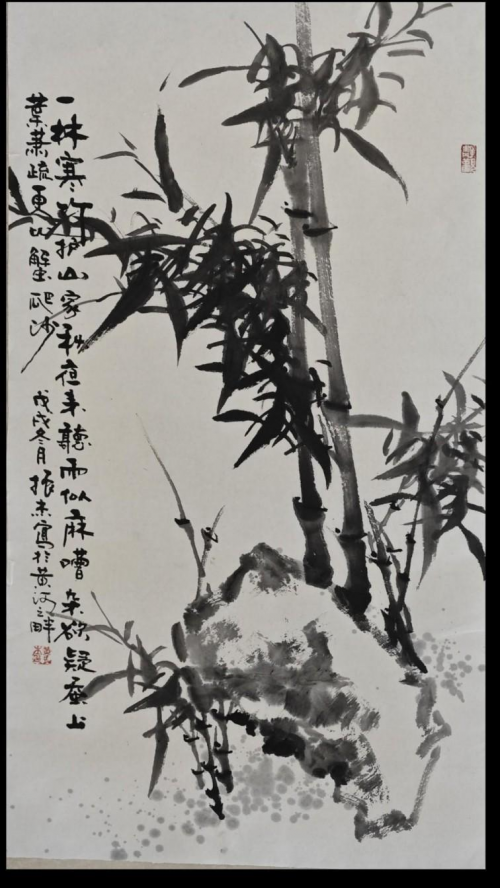 一林寒护山家秋夜来聽雨似麻嘈杂欲疑蚕上
葉蕭疏更比蟹爬沙
戊戌冬月振杰寫於黄河之畔